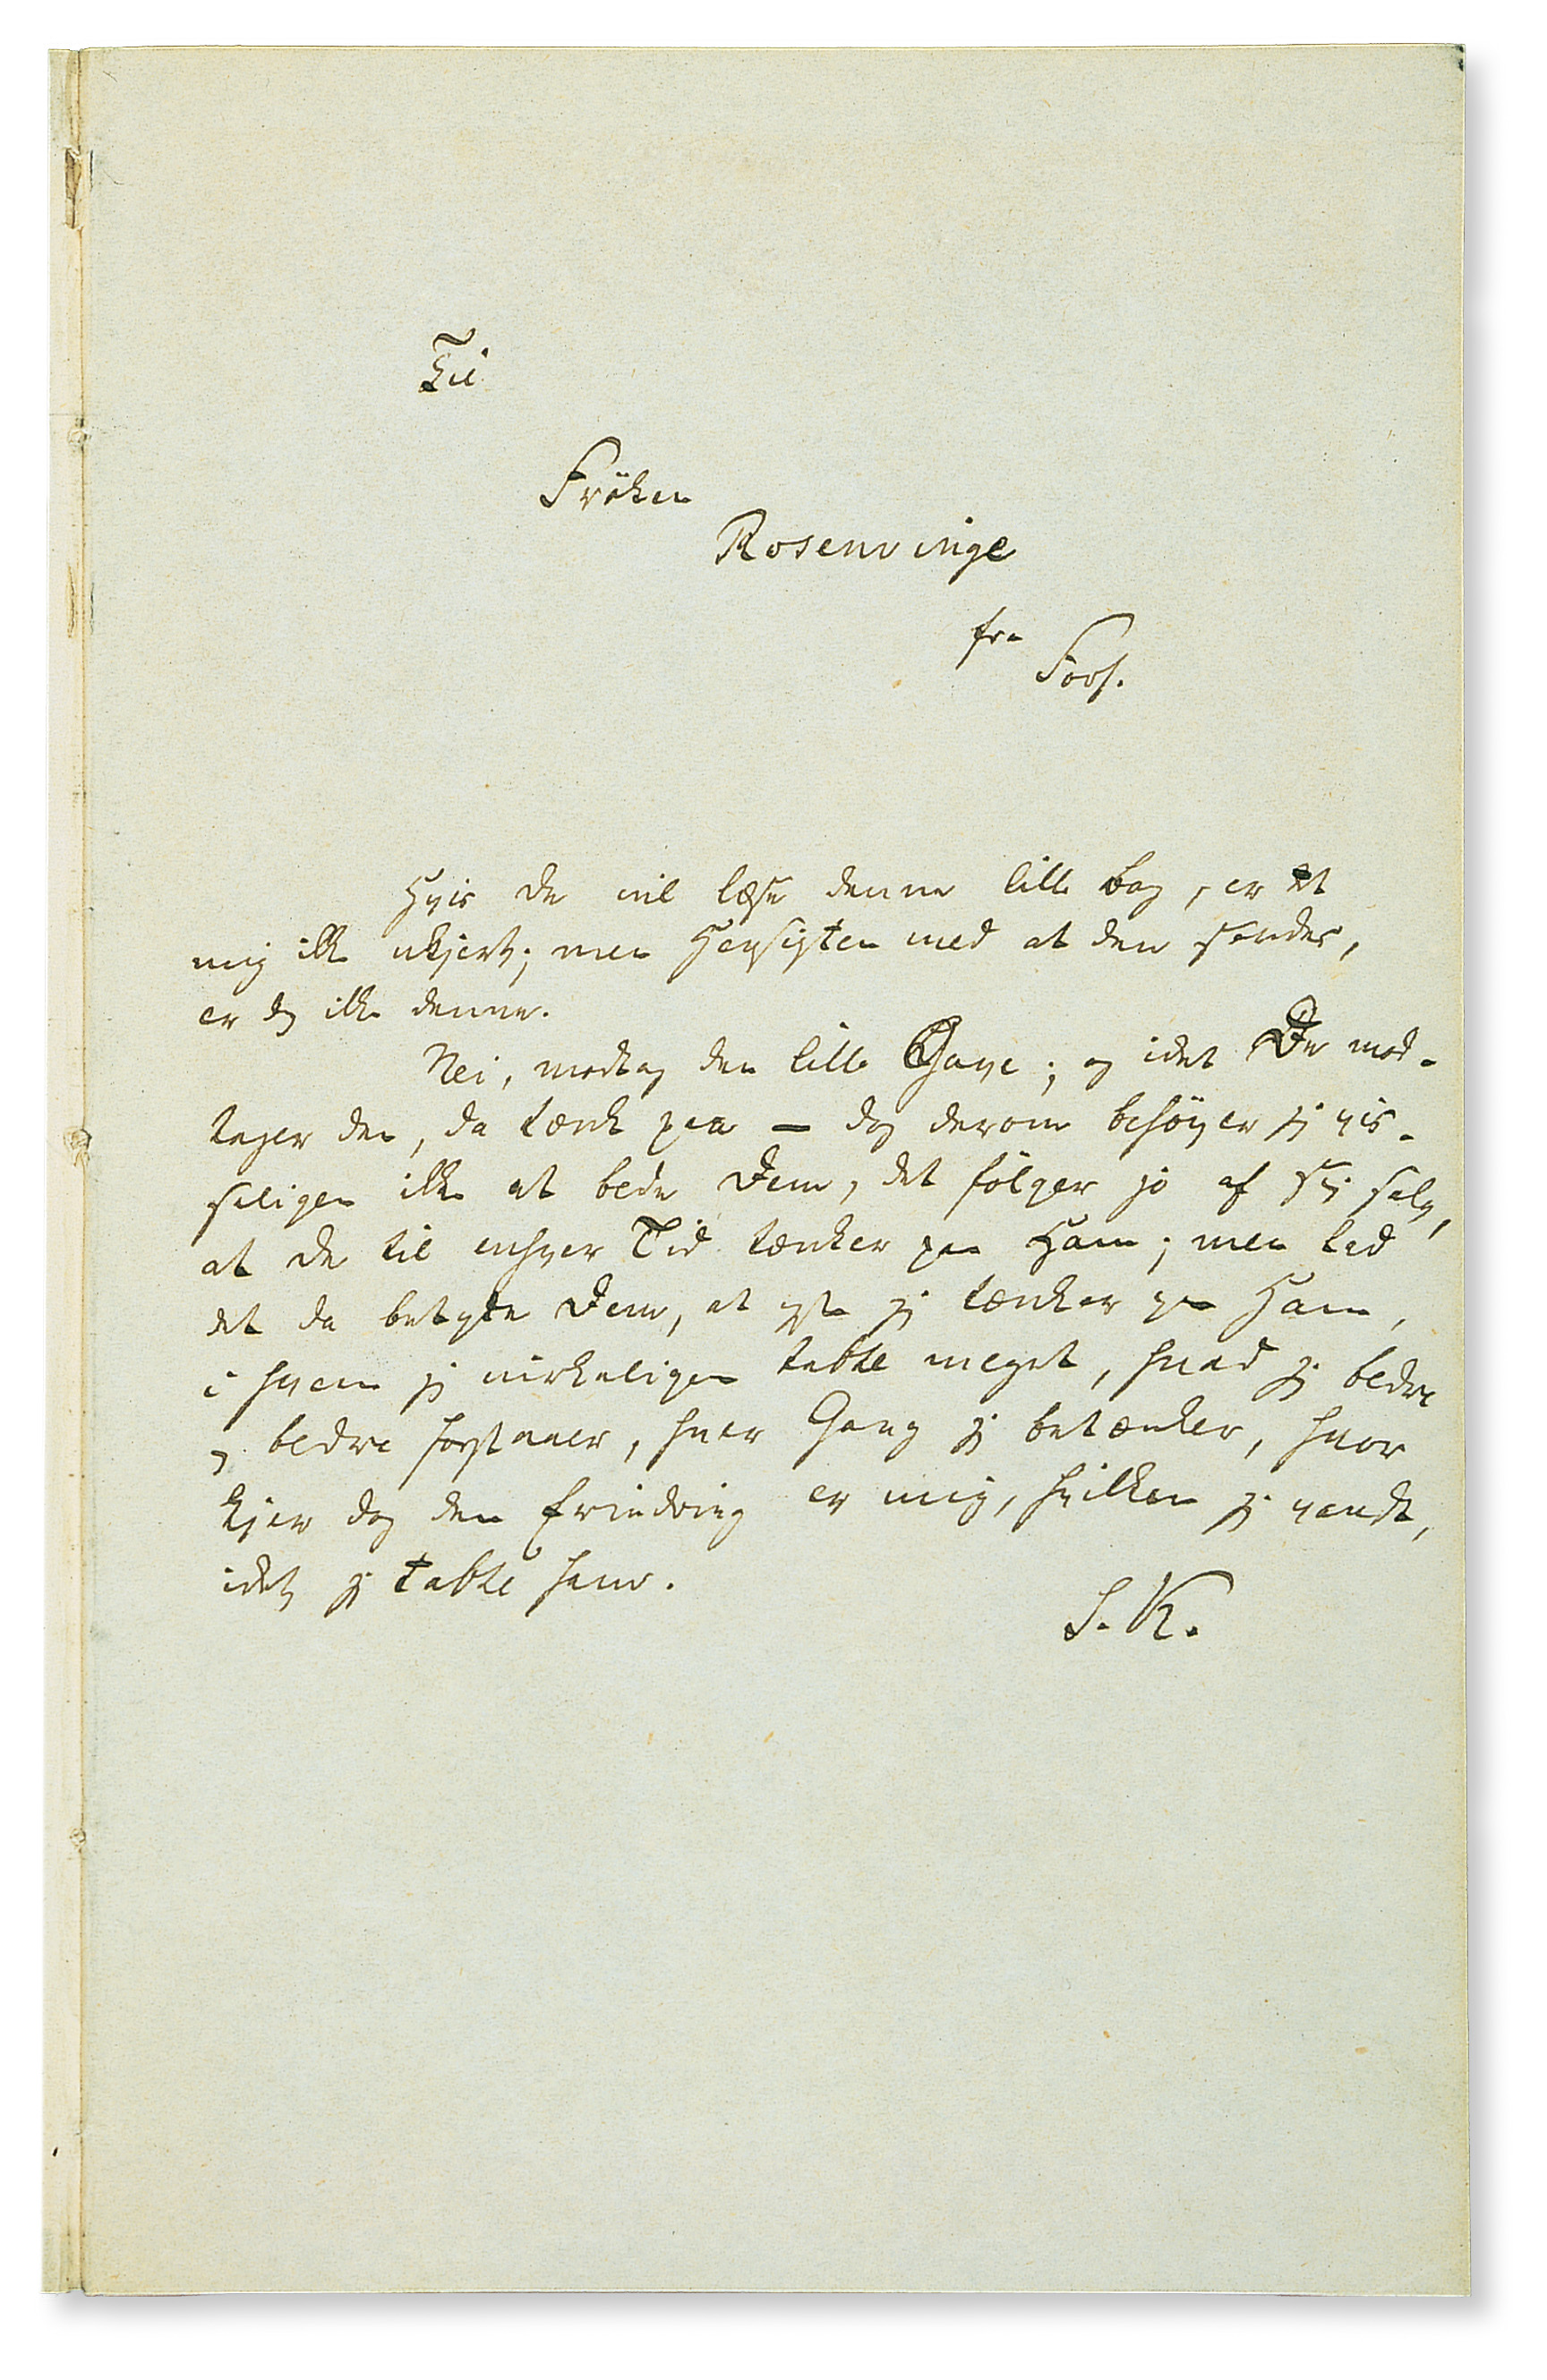 Til
Frøken
Rosenvinge
fra
Forf.
Hvis De vil læse denne lille Bog, er det
mig ikke ukjert; men Hensigten med at den sendes,
er dog ikke denne.
Nei, modtag den lille Gave; og idet De mod-
tager den, da tænk paa — dog derom behøver jeg vis-
seligen ikke at bede Dem, det følger jo af sig selv,
at De til enhver Tid tænker paa Ham; men lad
det da betyde Dem, at ogsaa jeg tænker paa Ham,
i hvem jeg virkeligen tabte meget, hvad jeg bedre
og bedre forstaaer, hver Gang jeg betænker, hvor
kjer dog den Erindring er mig, hvilken jeg vandt,
idet jeg tabte ham.
S. K.